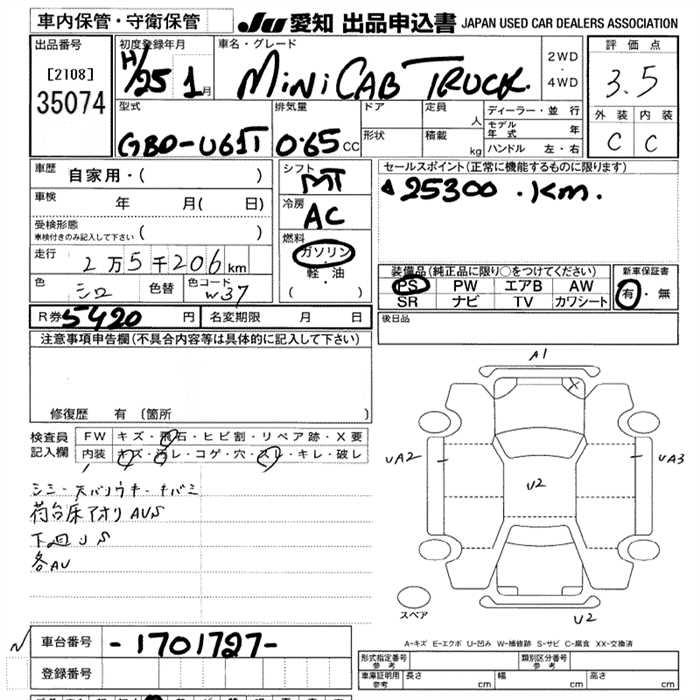 車内保管・守衛保管
JU 愛知 出品申込書 JAPAN USED CAR DEALERS ASSOCIATION
出品番号
[2108]
35074
初度登録年月
H/25 1月
車名・グレード
MINICAB TRUCK
2WD
・
4WD
評価点
3.5
外装 内装
C C
型式
GBD-U61T
排気量
0.65 CC
ドア
形状
定員 人
積載 kg
ディーラー・並行
モデル年式 年
ハンドル 左・右
車歴 自家用・( )
車検 年 月( 日)
受検形態
車検付きのみ記入して下さい ( )
走行 2万5千206km
色 シロ 色替 色コード W37
シフト
MT
冷房
AC
燃料
ガソリン
・
軽・油
( )
セールスポイント(正常に機能するものに限ります)
25300.Km.
装備品(純正品に限り○をつけてください)
PS PW エアB AW
SR ナビ TV カワシート
新車保証書
有・無
R券 5420 円 名変期限 月 日
後日品
注意事項申告欄(不具合内容等は具体的に記入して下さい)
修復歴 有 (箇所 )
検査員記入欄
FW キズ・飛石・ヒビ割・リペア跡・X要
内装 キズ・汚レ・コゲ・穴・スレ・キレ・破レ
荷台床アオリAUS
下廻りS
各AU
A1
UA2
U2
UA3
スペア
U2
A-キズ E-エクボ U-凹み W-補修跡 S-サビ C-腐食 XX-交換済
車台番号 -1701727-
登録番号
形式指定番号
参考
類別区分番号
参考
車庫証明用
参考
長さ cm 幅 cm 高さ cm